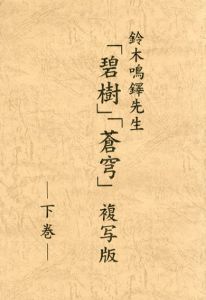 鈴木鳴鐸先生
「碧樹」「蒼穹」 複写版
―下巻―